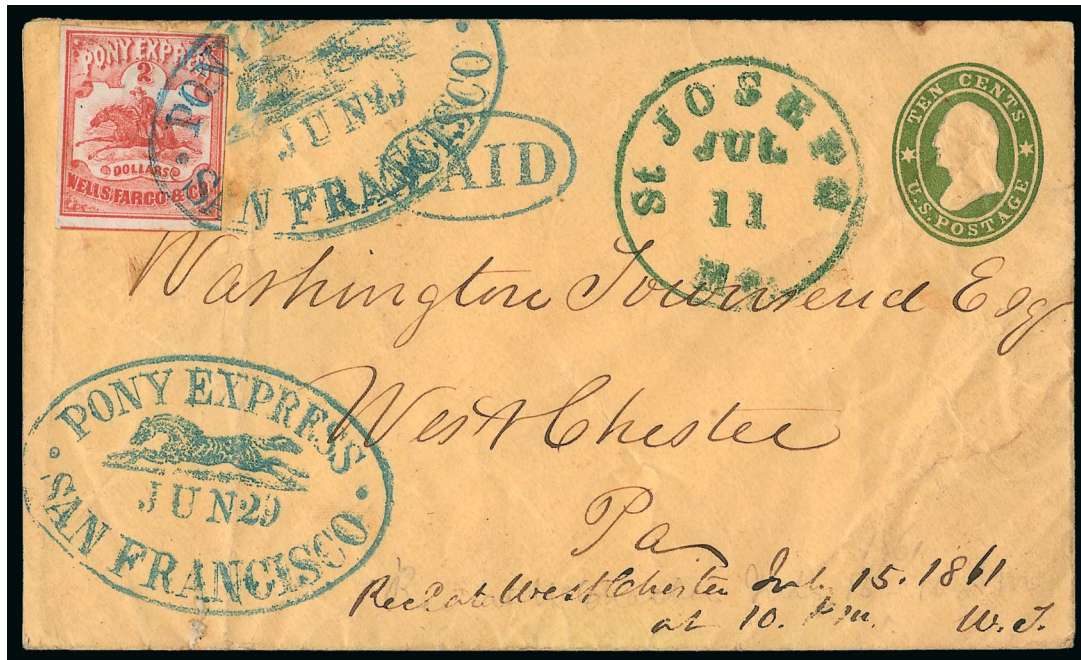 PONY EXPRESS
2
DOLLARS
WELLS, FARGO & Co.
PONY EXPRESS
JUN 29
SAN FRANCISCO
PAID
St JOSEPH
JUL
11
Mo.
TEN CENTS
U.S. POSTAGE
Washington Townsend Esq
West Chester
Pa
PONY EXPRESS
JUN 29
SAN FRANCISCO
Rec2 at West Chester Jul. 15. 1861
at 10. P.m. W.T.